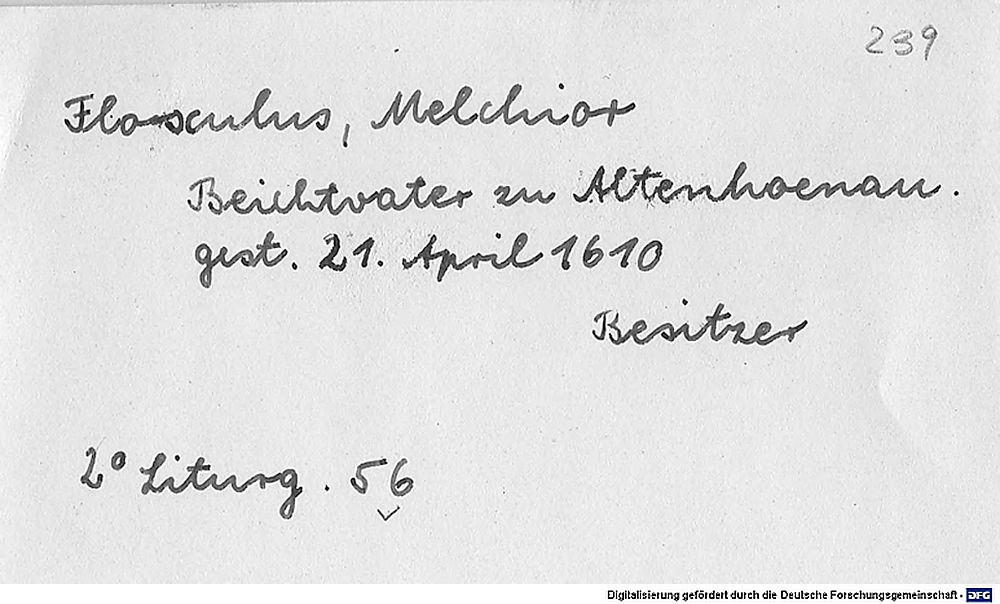 239
Flosculus, Melchior
Beichtvater zu Altenhoenau.
gest. 21. April 1610
Besitzer
2° Liturg. 56
Digitalisierung gefördert durch die Deutsche Forschungsgemeinschaft - DFG